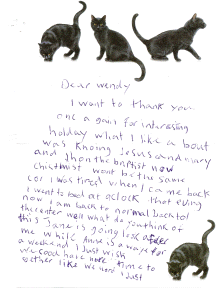 Dear wendy
I want to thank you
one a gain for interesting
holday what I like a bout
was knoing Jesus and mary
and Jhon the baptist now
christmust wont be the same
cor I was tired when I came back
I went to bed at oclock that eving
now I am back to normal back to
the center well what do you think of
this Jane is going look after
me while Anne is a way for
a weekend I Just wish
we coud have more time to
gether like we used to Just